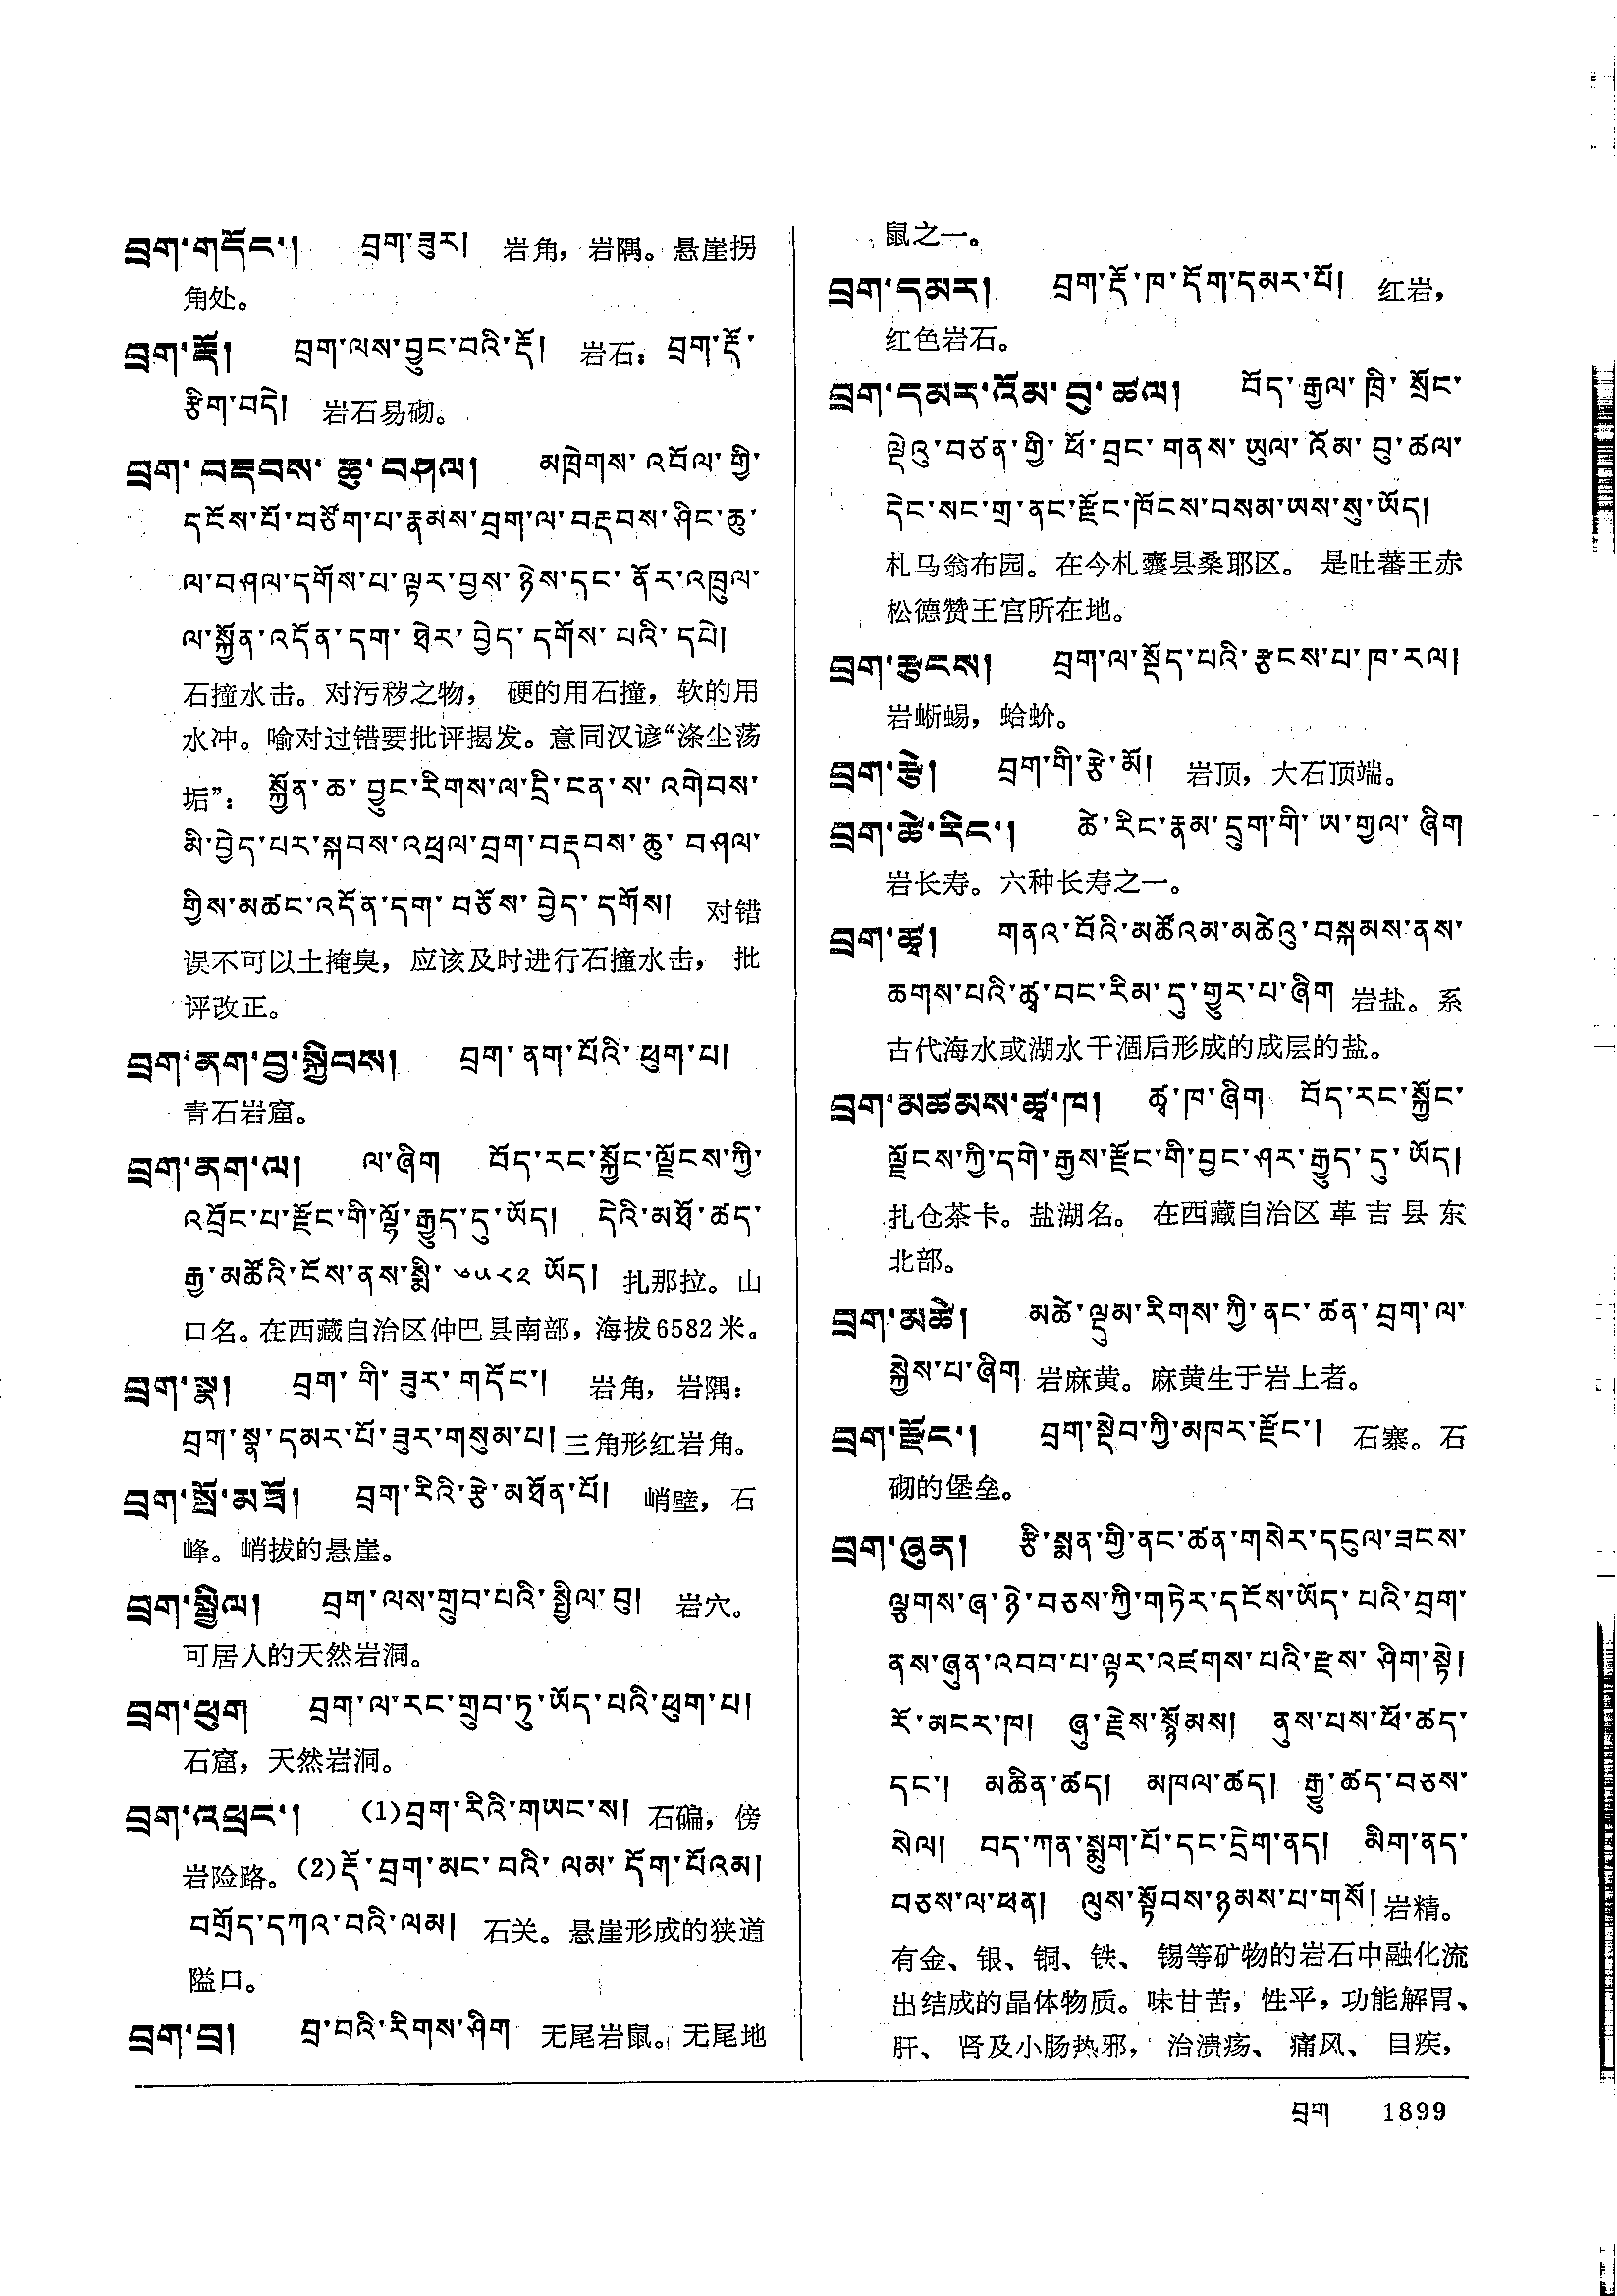 བྲག་གདོང་། བྲག་ཟུར། 岩角，岩隅。悬崖拐
角处。
བྲག་རྡོ། བྲག་ལས་བྱུང་བའི་རྡོ། 岩石：བྲག་རྡོ་
རྩིག་བདེ། 岩石易砌。
བྲག་བརྡབས་ཆུ་བཤལ། མཁྲེགས་འབོལ་གྱི་
དངོས་པོ་བཙོག་པ་རྣམས་བྲག་ལ་བརྡབས་ཤིང་ཆུ་
ལ་བཤལ་དགོས་པ་ལྟར་བྱས་ཉེས་དང་ནོར་འཁྲུལ་
ལ་སྐྱོན་འདོན་དག་ཐེར་བྱེད་དགོས་པའི་དཔེ།
石撞水击。对污秽之物，硬的用石撞，软的用
水冲。喻对过错要批评揭发。意同汉谚“涤尘荡
垢”：སྐྱོན་ཆ་བྱུང་རིགས་ལ་དྲི་ངན་ས་འགེབས་
མི་བྱེད་པར་སྐབས་འཕྲལ་བྲག་བརྡབས་ཆུ་བཤལ་
གྱིས་མཚང་འདོན་དག་བཅོས་བྱེད་དགོས། 对错
误不可以土掩臭，应该及时进行石撞水击，批
评改正。
བྲག་ནག་བྱ་སྐྱིབས། བྲག་ནག་པོའི་ཕུག་པ།
青石岩窟。
བྲག་ནག་ལ། ལ་ཞིག བོད་རང་སྐྱོང་ལྗོངས་ཀྱི་
འབྲོང་པ་རྫོང་གི་ལྷོ་རྒྱུད་དུ་ཡོད། དེའི་མཐོ་ཚད་
རྒྱ་མཚོའི་ངོས་ནས་སྨི་༦༥༨༢ཡོད། 扎那拉。山
口名。在西藏自治区仲巴县南部，海拔6582米。
བྲག་སྣ། བྲག་གི་ཟུར་གདོང་། 岩角，岩隅：
བྲག་སྣ་དམར་པོ་ཟུར་གསུམ་པ། 三角形红岩角。
བྲག་སྤོ་མཐོ། བྲག་རིའི་རྩེ་མཐོན་པོ། 峭壁，石
峰。峭拔的悬崖。
བྲག་སྤྱིལ། བྲག་ལས་གྲུབ་པའི་སྤྱིལ་བུ། 岩穴。
可居人的天然岩洞。
བྲག་ཕུག བྲག་ལ་རང་གྲུབ་ཏུ་ཡོད་པའི་ཕུག་པ།
石窟，天然岩洞。
བྲག་འཕྲང་། (1)བྲག་རིའི་གཡང་ས། 石碥，傍
岩险路。(2)རྡོ་བྲག་མང་བའི་ལམ་དོག་པོའམ།
བགྲོད་དཀའ་བའི་ལམ། 石关。悬崖形成的狭道
隘口。
བྲག་བྲ། བྲ་བའི་རིགས་ཤིག 无尾岩鼠。无尾地
鼠之一。
བྲག་དམར། བྲག་རྡོ་ཁ་དོག་དམར་པོ། 红岩，
红色岩石。
བྲག་དམར་འོམ་བུ་ཚལ། བོད་རྒྱལ་ཁྲི་སྲོང་
ལྡེའུ་བཙན་གྱི་ཕོ་བྲང་གནས་ཡུལ་འོམ་བུ་ཚལ་
དེང་སང་གྲ་ནང་རྫོང་ཁོངས་བསམ་ཡས་སུ་ཡོད།
札马翁布园。在今札囊县桑耶区。是吐蕃王赤
松德赞王宫所在地。
བྲག་རྩངས། བྲག་ལ་སྡོད་པའི་རྩངས་པ་ཁ་རལ།
岩蜥蜴，蛤蚧。
བྲག་རྩེ། བྲག་གི་རྩེ་མོ། 岩顶，大石顶端。
བྲག་ཚེ་རིང་། ཚེ་རིང་རྣམ་དྲུག་གི་ཡ་གྱལ་ཞིག
岩长寿。六种长寿之一。
བྲག་ཚྭ། གནའ་བོའི་མཚོའམ་མཚེའུ་བསྐམས་ནས་
ཆགས་པའི་ཚྭ་བང་རིམ་དུ་གྱུར་པ་ཞིག 岩盐。系
古代海水或湖水干涸后形成的成层的盐。
བྲག་མཚམས་ཚྭ་ཁ། ཚྭ་ཁ་ཞིག བོད་རང་སྐྱོང་
ལྗོངས་ཀྱི་དགེ་རྒྱས་རྫོང་གི་བྱང་ཤར་རྒྱུད་དུ་ཡོད།
扎仓茶卡。盐湖名。在西藏自治区革吉县东
北部。
བྲག་མཚེ། མཚེ་ལྡུམ་རིགས་ཀྱི་ནང་ཚན་བྲག་ལ་
སྐྱེས་པ་ཞིག 岩麻黄。麻黄生于岩上者。
བྲག་རྫོང་། བྲག་སྡེབ་ཀྱི་མཁར་རྫོང་། 石寨。石
砌的堡垒。
བྲག་ཞུན། རྩི་སྨན་གྱི་ནང་ཚན་གསེར་དངུལ་ཟངས་
ལྕགས་ཞ་ཉེ་བཅས་ཀྱི་གཏེར་དངོས་ཡོད་པའི་བྲག་
ནས་ཞུན་འབབ་པ་ལྟར་འཛགས་པའི་རྫས་ཤིག་སྟེ།
རོ་མངར་ཁ། ཞུ་རྗེས་སྙོམས། ནུས་པས་ཕོ་ཚད་
དང་། མཆིན་ཚད། མཁལ་ཚད། རྒྱུ་ཚད་བཅས་
སེལ། བད་ཀན་སྨུག་པོ་དང་དྲེག་ནད། མིག་ནད་
བཅས་ལ་ཕན། ལུས་སྟོབས་ཉམས་པ་གསོ། 岩精。
有金、银、铜、铁、锡等矿物的岩石中融化流
出结成的晶体物质。味甘苦，性平，功能解胃、
肝、肾及小肠热邪，治溃疡、痛风、目疾，
བྲག 1899